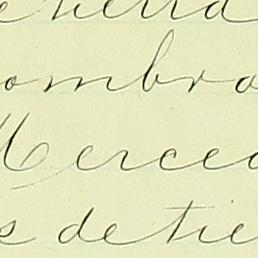 e tierra
ombra
Merced
s de tie